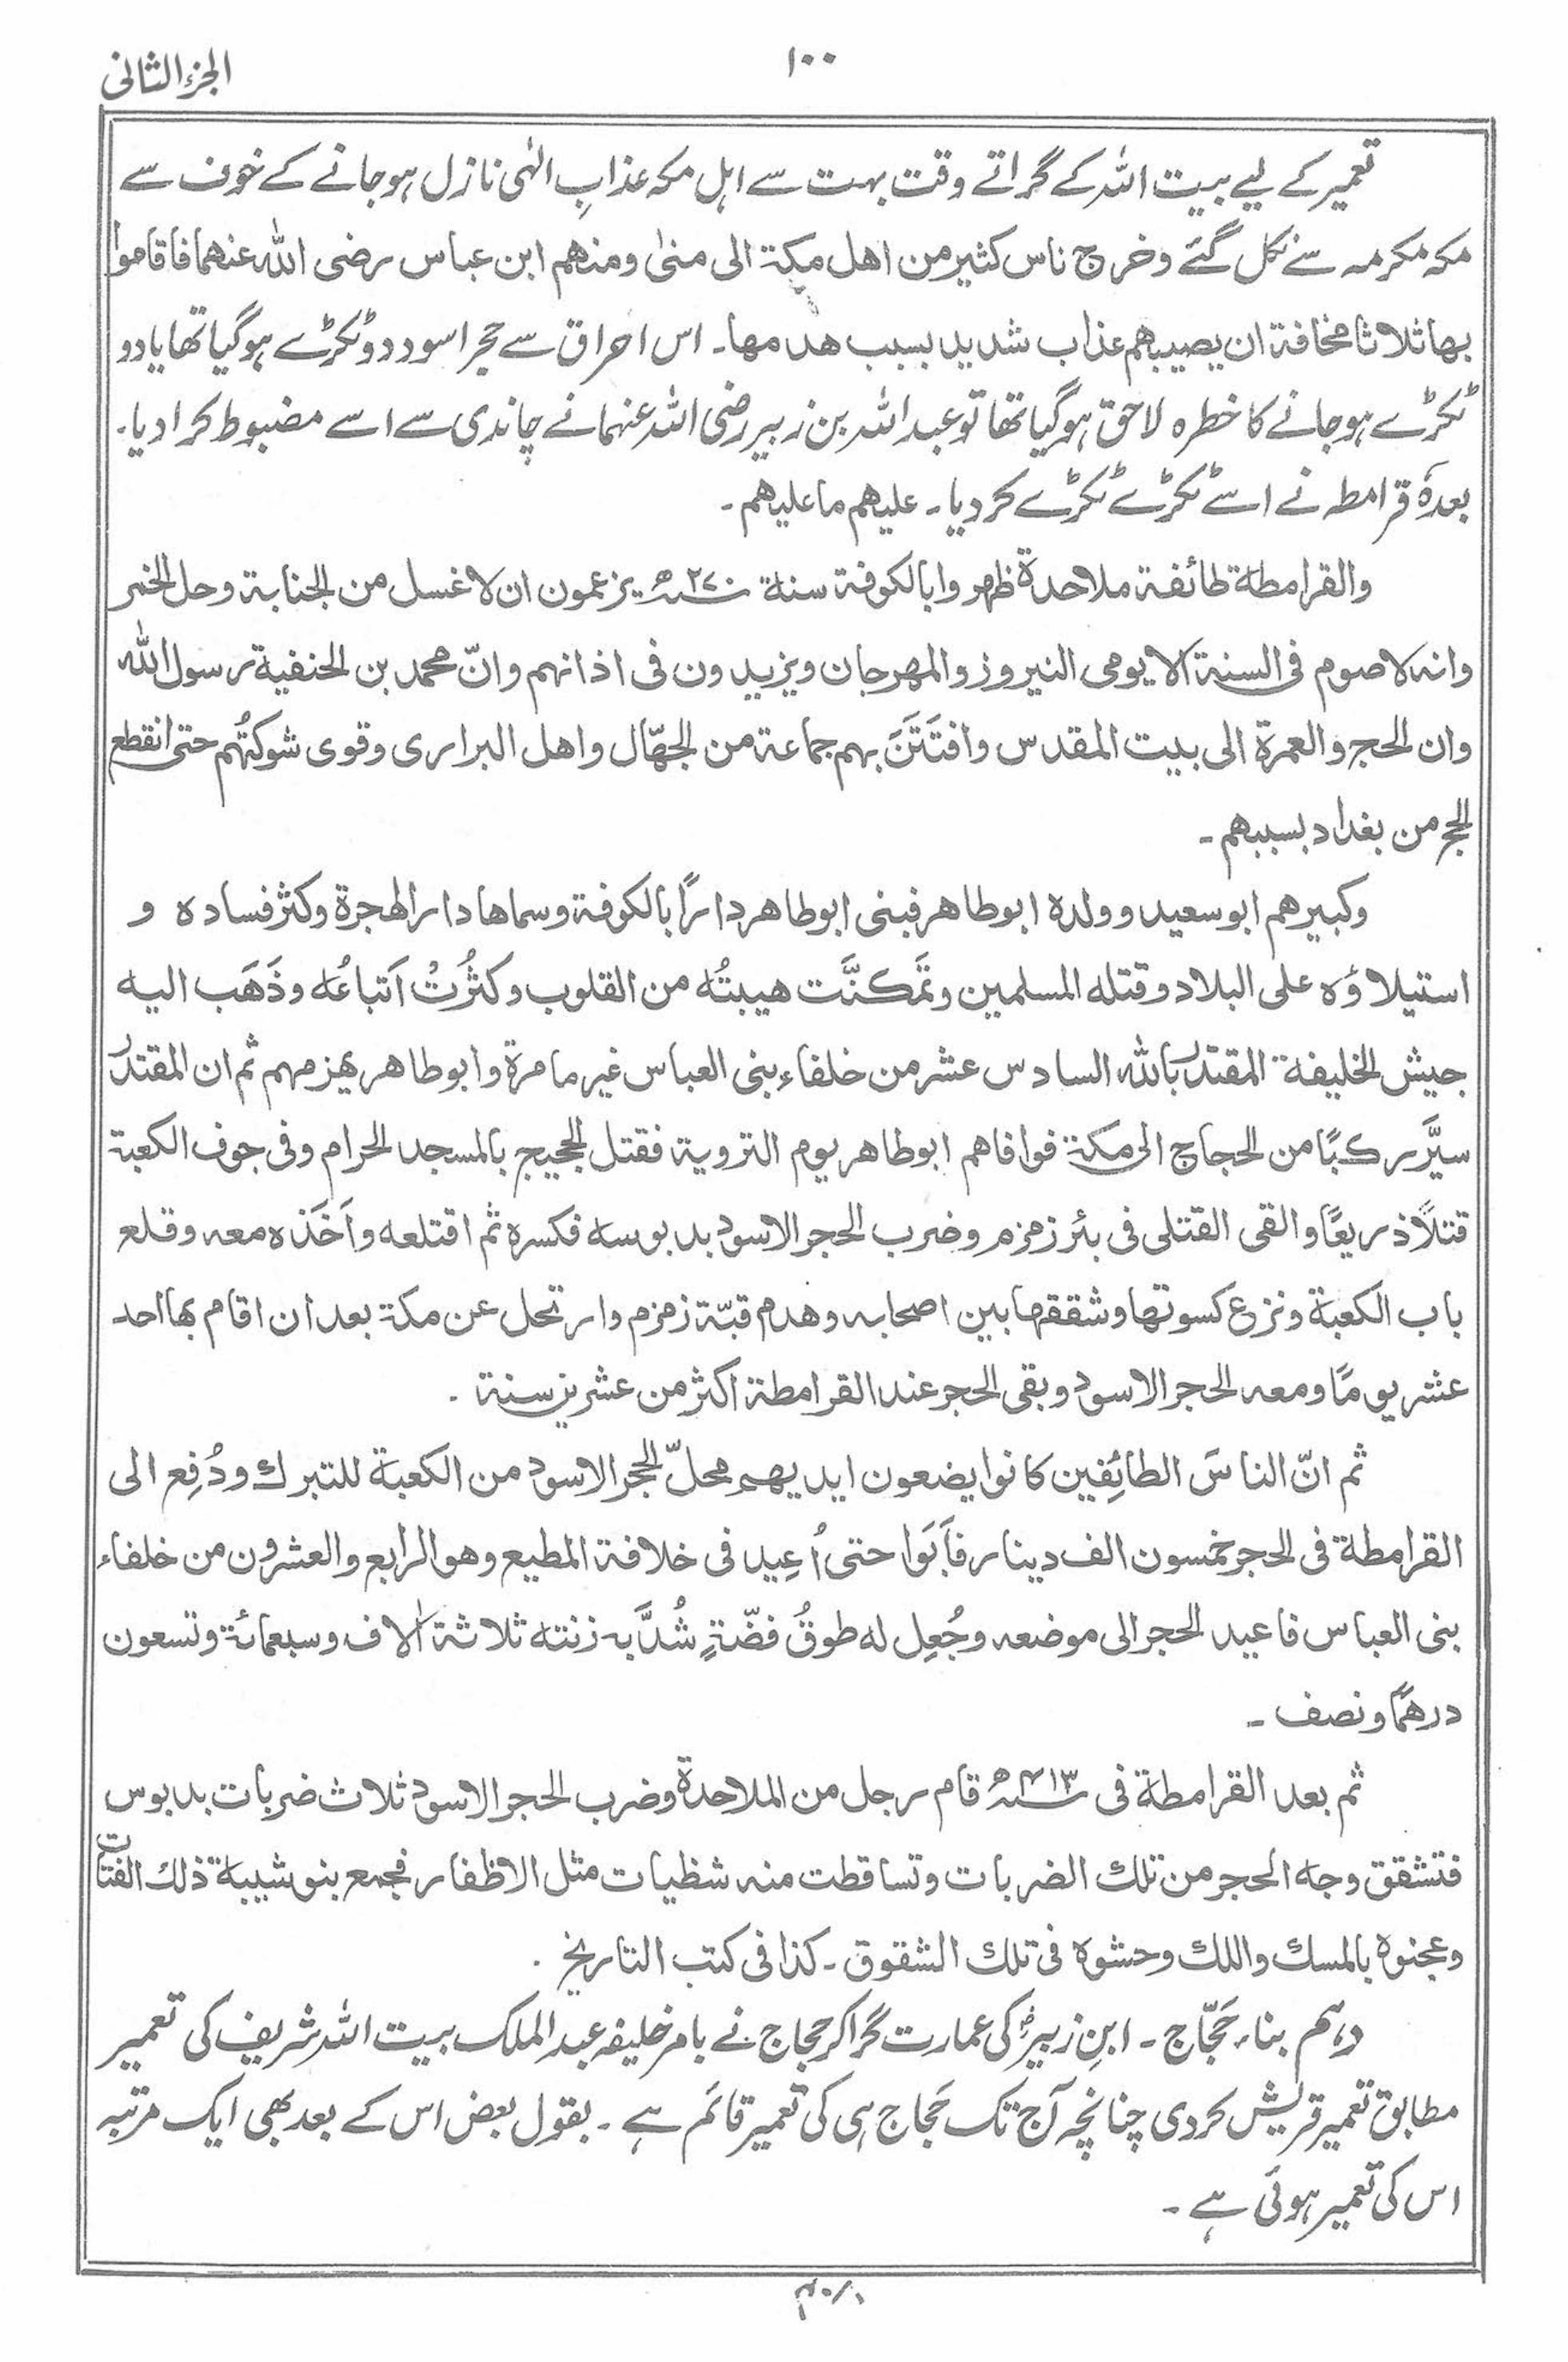 الجزء الثانی
۱۰۰
تعمیر کے لیے بیت اللہ کے گراتے وقت بہت سے اہل مکہ عذابِ الٰہی نازل ہو جانے کے خوف سے
مکہ مکرمہ سے نکل گئے وخرج ناس کثیر من اھل مکۃ الی منیٰ ومنھم ابن عباس رضی اللہ عنھما فاقاموا
بھا ثلاثا مخافۃ ان یصیبھم عذاب شدید بسبب ھدمھا۔ اس احراق سے حجر اسود دو ٹکڑے ہو گیا تھا یا دو
ٹکڑے ہو جانے کا خطرہ لاحق ہو گیا تھا تو عبد اللہ بن زبیر رضی اللہ عنہما نے چاندی سے اسے مضبوط کرا دیا۔
بعدہٗ قرامطہ نے اسے ٹکڑے ٹکڑے کر دیا۔ علیھم ما علیھم۔
والقرامطۃ طائفۃ ملاحدۃ ظھروا بالکوفۃ سنۃ ۲۷۰ھ یزعمون ان لا غسل من الجنابۃ وحل الخمر
وانہ لا صوم فی السنۃ الا یومی النیروز والمھرجان ویزیدون فی اذانھم وانّ محمد بن الحنفیۃ رسول اللہ
وان الحج والعمرۃ الی بیت المقدس وافتَتَنَ بھم جماعۃ من الجھّال واھل البراری وقوی شوکتُھم حتی انقطع
الحج من بغداد بسببھم۔
وکبیرھم ابو سعید وولدہ ابو طاھر فبنی ابو طاھر دارًا بالکوفۃ وسماھا دار الھجرۃ وکثر فسادہ و
استیلاؤہ علی البلاد وقتلہ المسلمین وتَمکنَّت ھیبتُہ من القلوب وکثُرتْ اَتباعُہ وذَھَب الیہ
جیش الخلیفۃ المقتدر باللہ السادس عشر من خلفاء بنی العباس غیر ما مرۃ وابو طاھر یھزمھم ثم ان المقتدر
سیَّر رکبًا من الحجاج الی مکۃ فوافاھم ابو طاھر یوم الترویۃ فقتل الحجیج بالمسجد الحرام وفی جوف الکعبۃ
قتلًا ذریعًا والقی القتلی فی بئر زمزم وضرب الحجر الاسود بدبوسہ فکسرہ ثم اقتلعہ واَخَذہ معہ وقلع
باب الکعبۃ ونزع کسوتھا وشققھا بین اصحابہ وھدم قبّۃ زمزم وارتحل عن مکۃ بعد ان اقام بھا احد
عشر یومًا ومعہ الحجر الاسود وبقی الحجر عند القرامطۃ اکثر من عشرین سنۃ۔
ثم انّ الناسَ الطائِفین کانوا یضعون ایدیھم محلّ الحجر الاسود من الکعبۃ للتبرک ودُفِع الی
القرامطۃ فی الحجر خمسون الف دینار فاَبَوا حتی اُعِید فی خلافۃ المطیع وھو الرابع والعشرون من خلفاء
بنی العباس فاعید الحجر الی موضعہ وجُعِل لہ طوقُ فضّۃٍ شُدَّ بہ زنتہ ثلاثۃ اٰلاف وسبعمائۃ وتسعون
درھمًا ونصف۔
ثم بعد القرامطۃ فی ۴۱۳ھ قام رجل من الملاحدۃ وضرب الحجر الاسود ثلاث ضربات بدبوس
فتشقق وجہ الحجر من تلک الضربات وتساقطت منہ شظیات مثل الاظفار فجمع بنو شیبۃ ذلک الفتات
وعجنوہ بالمسک واللک وحشوہ فی تلک الشقوق۔ کذا فی کتب التاریخ۔
دہم بناء حَجّاج۔ ابنِ زبیرؓ کی عمارت گرا کر حجاج نے بامر خلیفہ عبد الملک بیت اللہ شریف کی تعمیر
مطابق تعمیر قریش کر دی چنانچہ آج تک حجاج ہی کی تعمیر قائم ہے۔ بقول بعض اس کے بعد بھی ایک مرتبہ
اس کی تعمیر ہوئی ہے۔